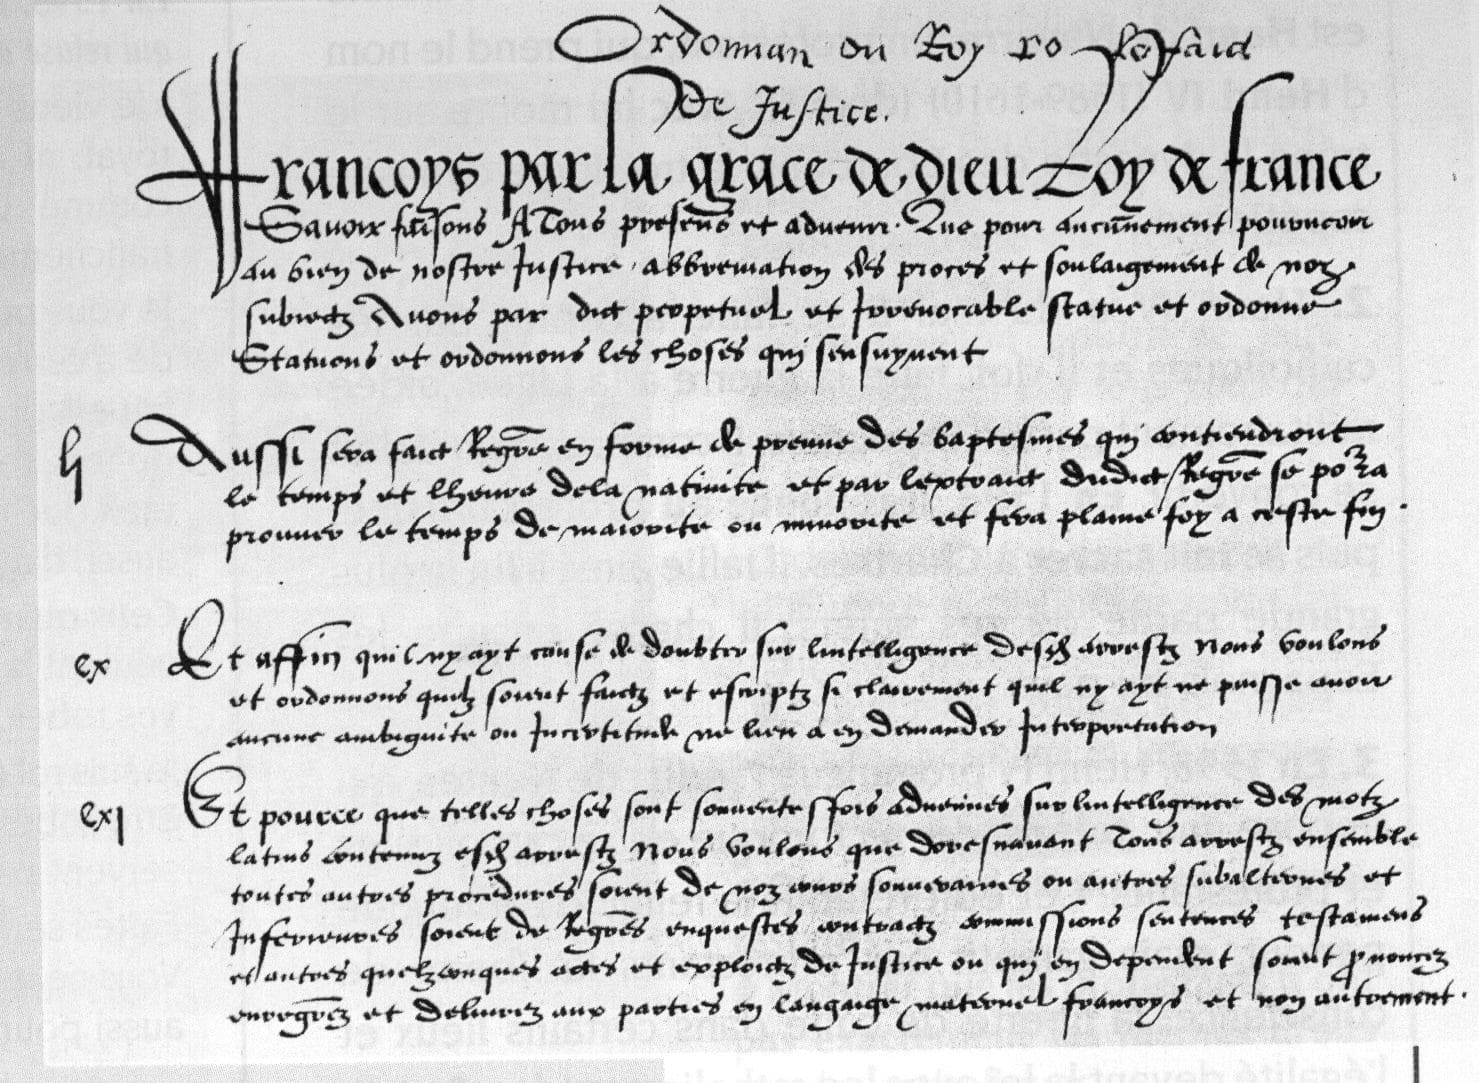 Ordonnan du Roy le faict
de Justice.
francoys par la grace de dieu Roy de france
Savoir faisons A Tous presens et advenir. Que pour aucunnement pourveoir
au bien de nostre Justice. abbreviation des proces et soulaigement de noz
subiectz Avons par dict perpetuel et Irrevocable statue et ordonne
Statuons et ordonnons les choses qui sensuyvent
li Aussi sera faict Regre en forme de preuve des baptesmes qui contiendront
le temps et lheure dela nativite et par lextraict dudict Regre se pora
prouver le temps de maiorite ou minorite et fera plaine foy a ceste fin.
cx Et affin quil ny ayt cause de doubter sur lintelligence desd arrestz Nous voulons
et ordonnons quilz soient faictz et escriptz si clairement quil ny ayt ne puisse avoir
aucune ambiguite ou Incertitude ne lieu a en demander Interpretation
cxj Et pource que telles choses sont souventesffois advenues sur lintelligence des motz
latins contenuz esd arrestz Nous voulons que doresnavant Tous arrestz ensemble
toutes autres procedures soient de noz cours souveraines ou autres subalternes et
Inferieures soient de Regres enquestes contractz commissions sentences testamens
et autres quelzconques actes et exploictz de Justice ou qui en dependent soient pronocez
enregrez et delivrez aux parties en langaige maternel francoys et non autrement.